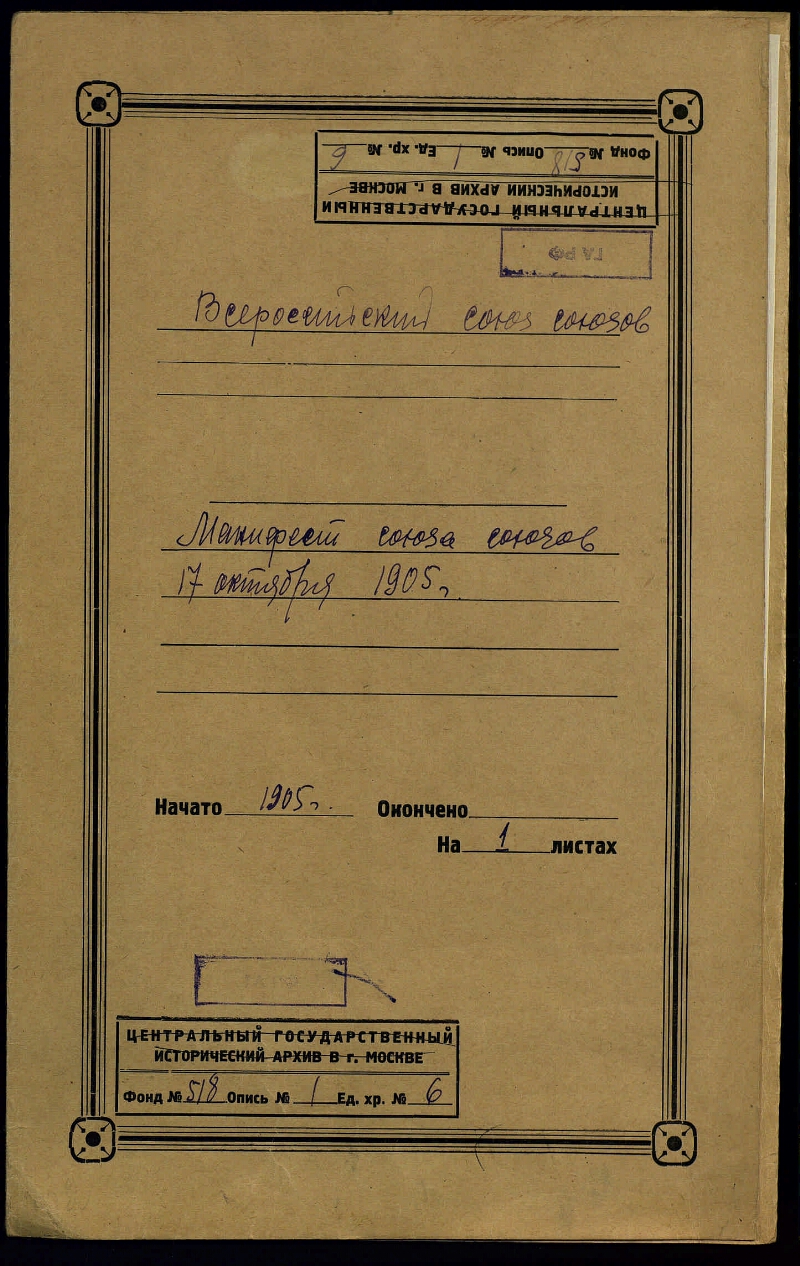 ЦЕНТРАЛЬНЫЙ ГОСУДАРСТВЕННЫЙ
ИСТОРИЧЕСКИЙ АРХИВ В г. МОСКВЕ
Фонд № 518 Опись № 1 Ед. хр. № 6
ГА РФ
Всероссийский союз союзов
Манифест союза союзов
17 октября 1905 г.
Начато 1905 г. Окончено
На 1 листах
ЦЕНТРАЛЬНЫЙ ГОСУДАРСТВЕННЫЙ
ИСТОРИЧЕСКИЙ АРХИВ В г. МОСКВЕ
Фонд № 518 Опись № 1 Ед. хр. № 6